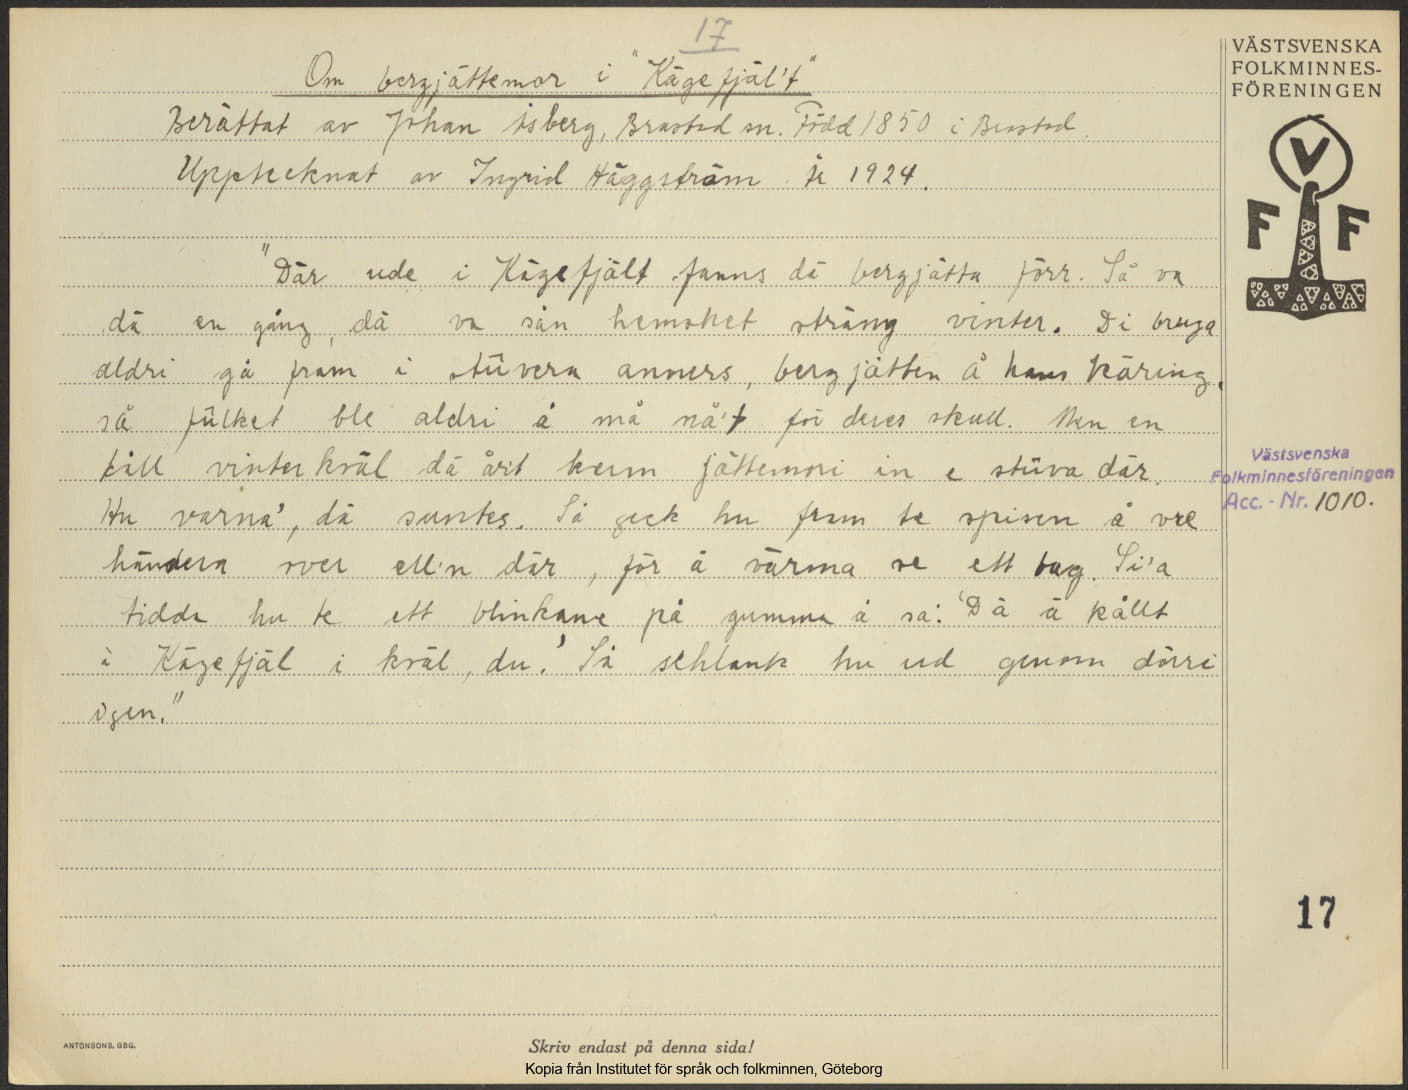 17
Om bergjättemor i "Kägefjäl't"
Berättat av Johan Isberg, Brastad sn. Född 1850 i Brastad.
Upptecknat av Ingrid Häggström år 1924.
"Där ude i Kägefjält fanns dä bergjätta förr. Så va
dä en gång, dä va sån hemsket sträng vinter. Di bruga
aldri gå fram i stûvera anners, bergjätten å hans käring,
så fûlket ble aldri å må nå't för deres skull. Men en
kåll vinterkväl dä året kom jättemori in e stûva där.
Hu varna', dä syntes. Så geck hu fram te spisen å vre
händera över ell'n där, för å värma se ett tag. Si'a
tidde hu te ett blinkane på gumma å sa: 'Dä ä kållt
i Kägefjäl i kväl, du.' Så schlank hu ud genom dörri
igen."
VÄSTSVENSKA
FOLKMINNES-
FÖRENINGEN
V
F F
Västsvenska
Folkminnesföreningen
Acc. - Nr. 1010.
17
ANTONSONS, GBG.
Skriv endast på denna sida!
Kopia från Institutet för språk och folkminnen, Göteborg